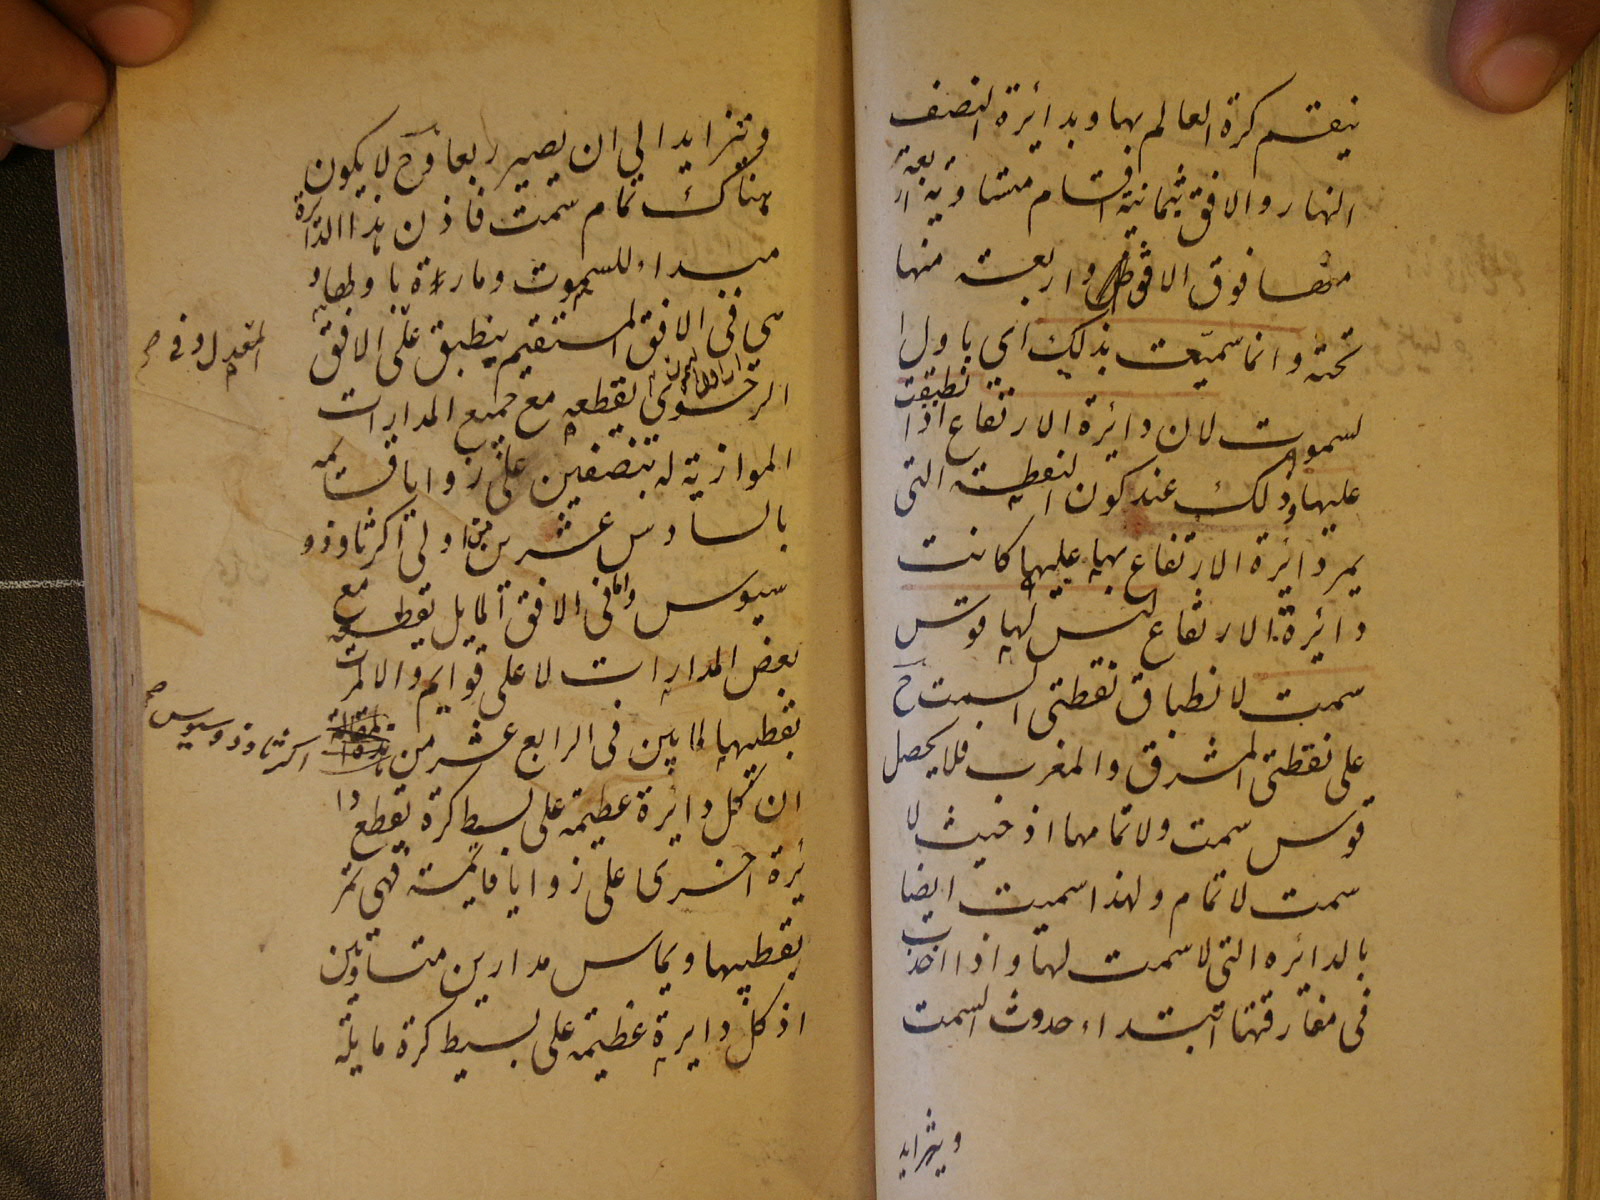 ينقسم كرة العالم بهما وبدائرة النصف
النهار والافق بثمانية اقسام متساوية اربعة
منها فوق الافق واربعة منها
تحته وانما سميت بذلك اى باول ا
لسموت لان دائرة الارتفاع اذا انطبقت
عليها وذلك عند كون النقطة التى
يمر دائرة الارتفاع بها عليها كانت
دائرة الارتفاع ليس لها قوس
سمت لانطباق نقطتى السمت ح
على نقطتى المشرق والمغرب فلا يحصل
قوس سمت ولا تمامها اذ حيث لا
سمت لا تمام ولهذا سميت ايضا
بالدائره التى لا سمت لها واذا اخذت
فى مفارقتها ابتداء حدوث السمت
ويتزايد
ويتزايد الى ان يصير ربعا وح لا يكون
هناك تمام سمت فاذن هذا الدائرة
مبداء للسموت ومارة باو
هى فى الافق المستقيم ينطبق على الافق
المعدل وفى صح
الرحوى يقطعه مع جميع المدارات
الموازية له بنصفين على زوايا قائمه
بالسادس عشر من اولى اكرثاوذو
سيوس واما فى الافق المايل يقطعه مع
بعض المدارات لا على قوايم والا لمرت
بقطبيها لما بين فى الرابع عشر من
اكرثاوذوسيوس صح
ان كل دائرة عظيمه على بسيط كرة يقطع دا
ئرة اخرى على زوايا قايمة فهى تمر
بقطبيها ويماس مدارين متساويين
اذ كل دايرة عظيمه على بسيط كرة مايلة